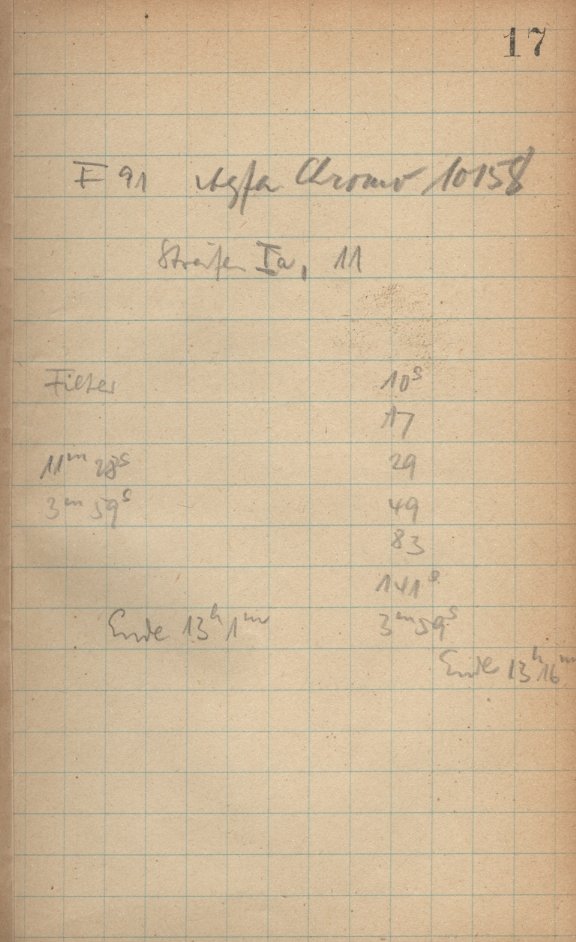 17
F 91 Agfa Chromo 10158
Streifen Ia, 11
Filter 10s
17
11m 28s 29
3m 59s 49
83
141s
Ende 13h 1m 3m 59s
Ende 13h 16m